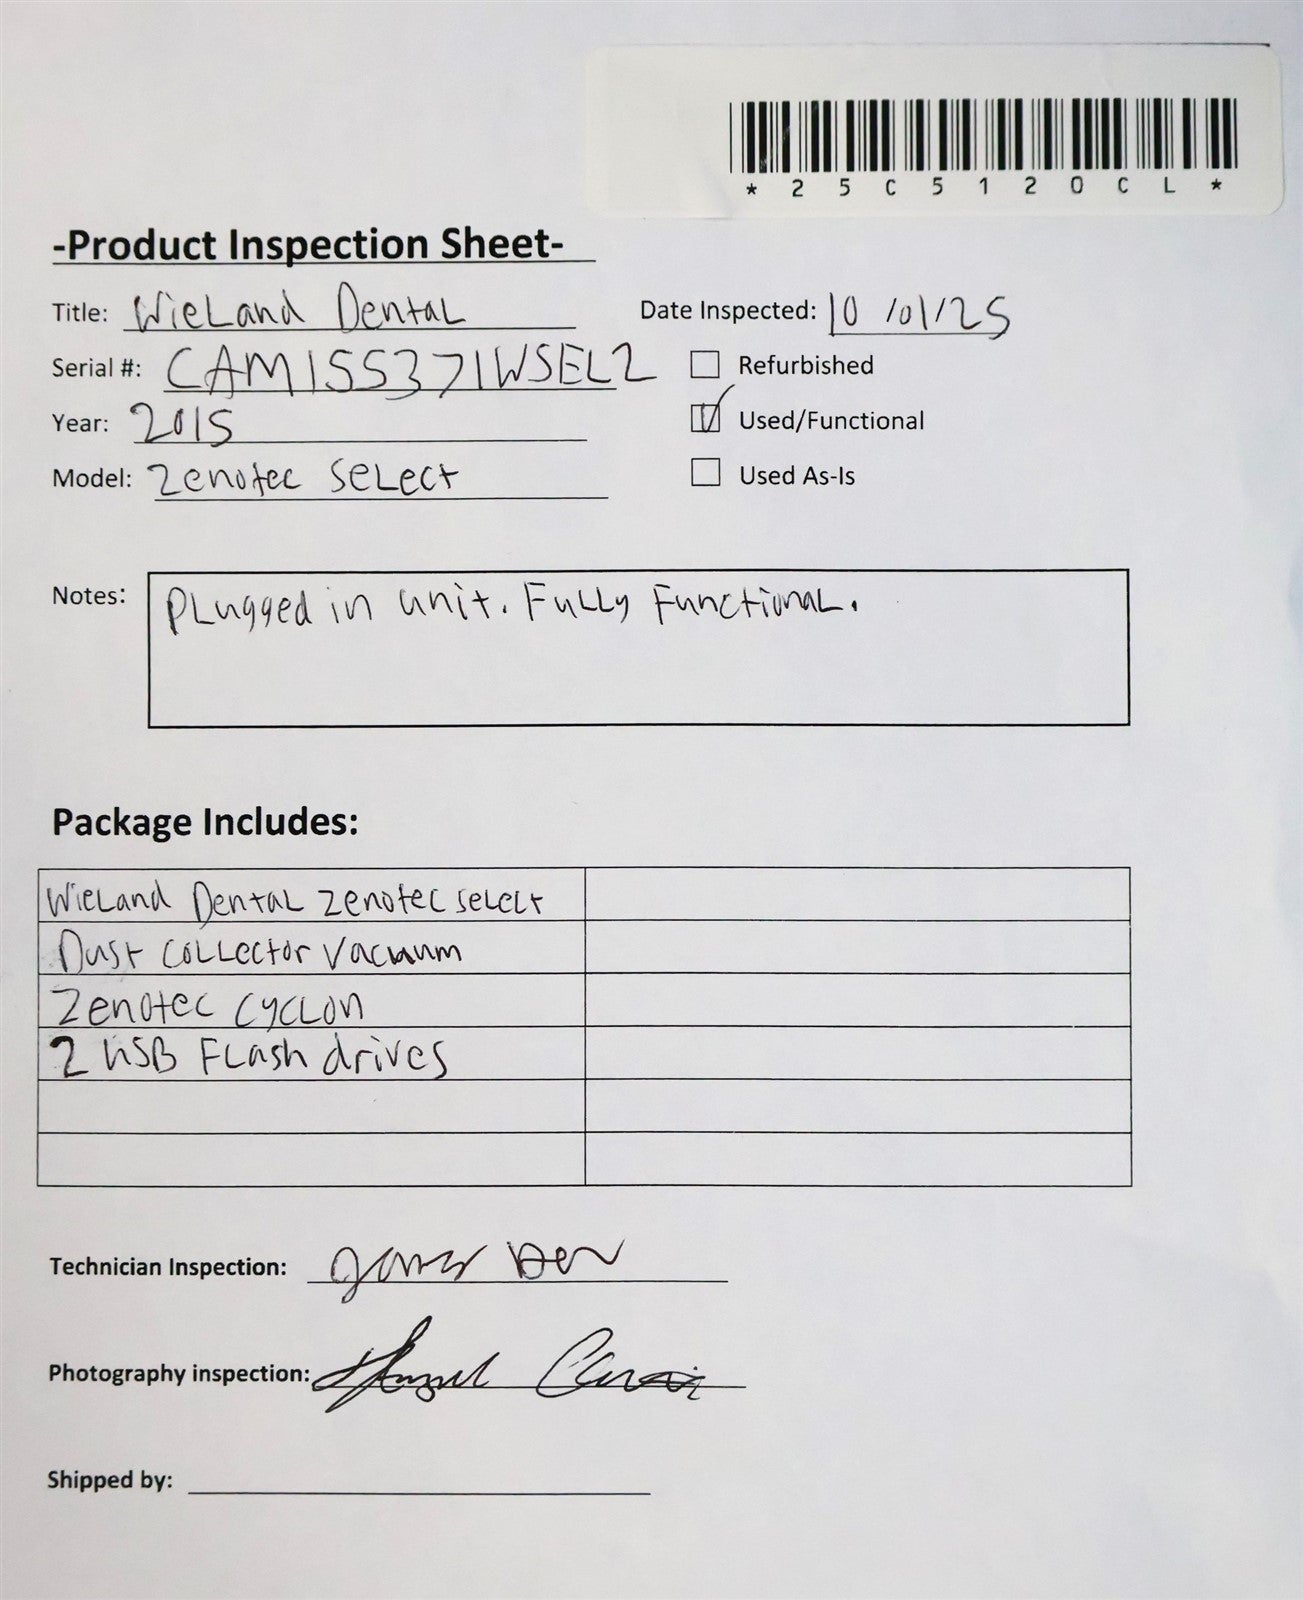 *25C5120CL*
-Product Inspection Sheet-
Title: WieLand Dental Date Inspected: 10/01/25
Serial #: CAM155371WSEL2 Refurbished
Year: 2015 Used/Functional
Model: Zenotec Select Used As-Is
Notes: Plugged in unit. Fully Functional.
Package Includes:
WieLand Dental Zenotec Select
Dust Collector Vacuum
Zenotec Cyclon
2 USB Flash drives
Technician Inspection:
Photography inspection:
Shipped by: